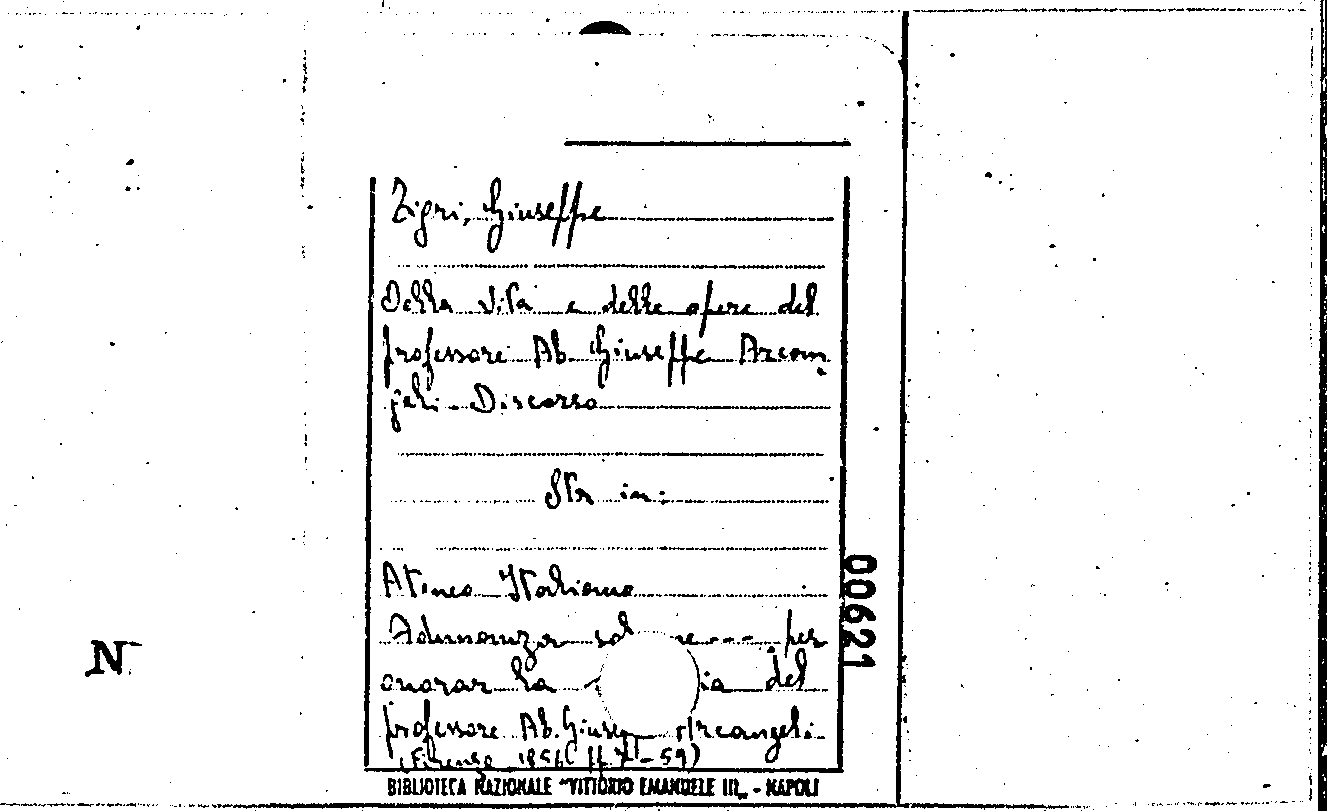 Zigri, Giuseppe
Della vita e delle opere del
professore Ab. Giuseppe Arcan
geli. Discorso
Sta in:
Ateneo Italiano
Adunanza sol ne--- per
onorar la ia del
professore Ab. Giusep Arcangeli
(Firenze
00621
N
BIBLIOTECA NAZIONALE "VITTORIO EMANUELE III„ - NAPOLI